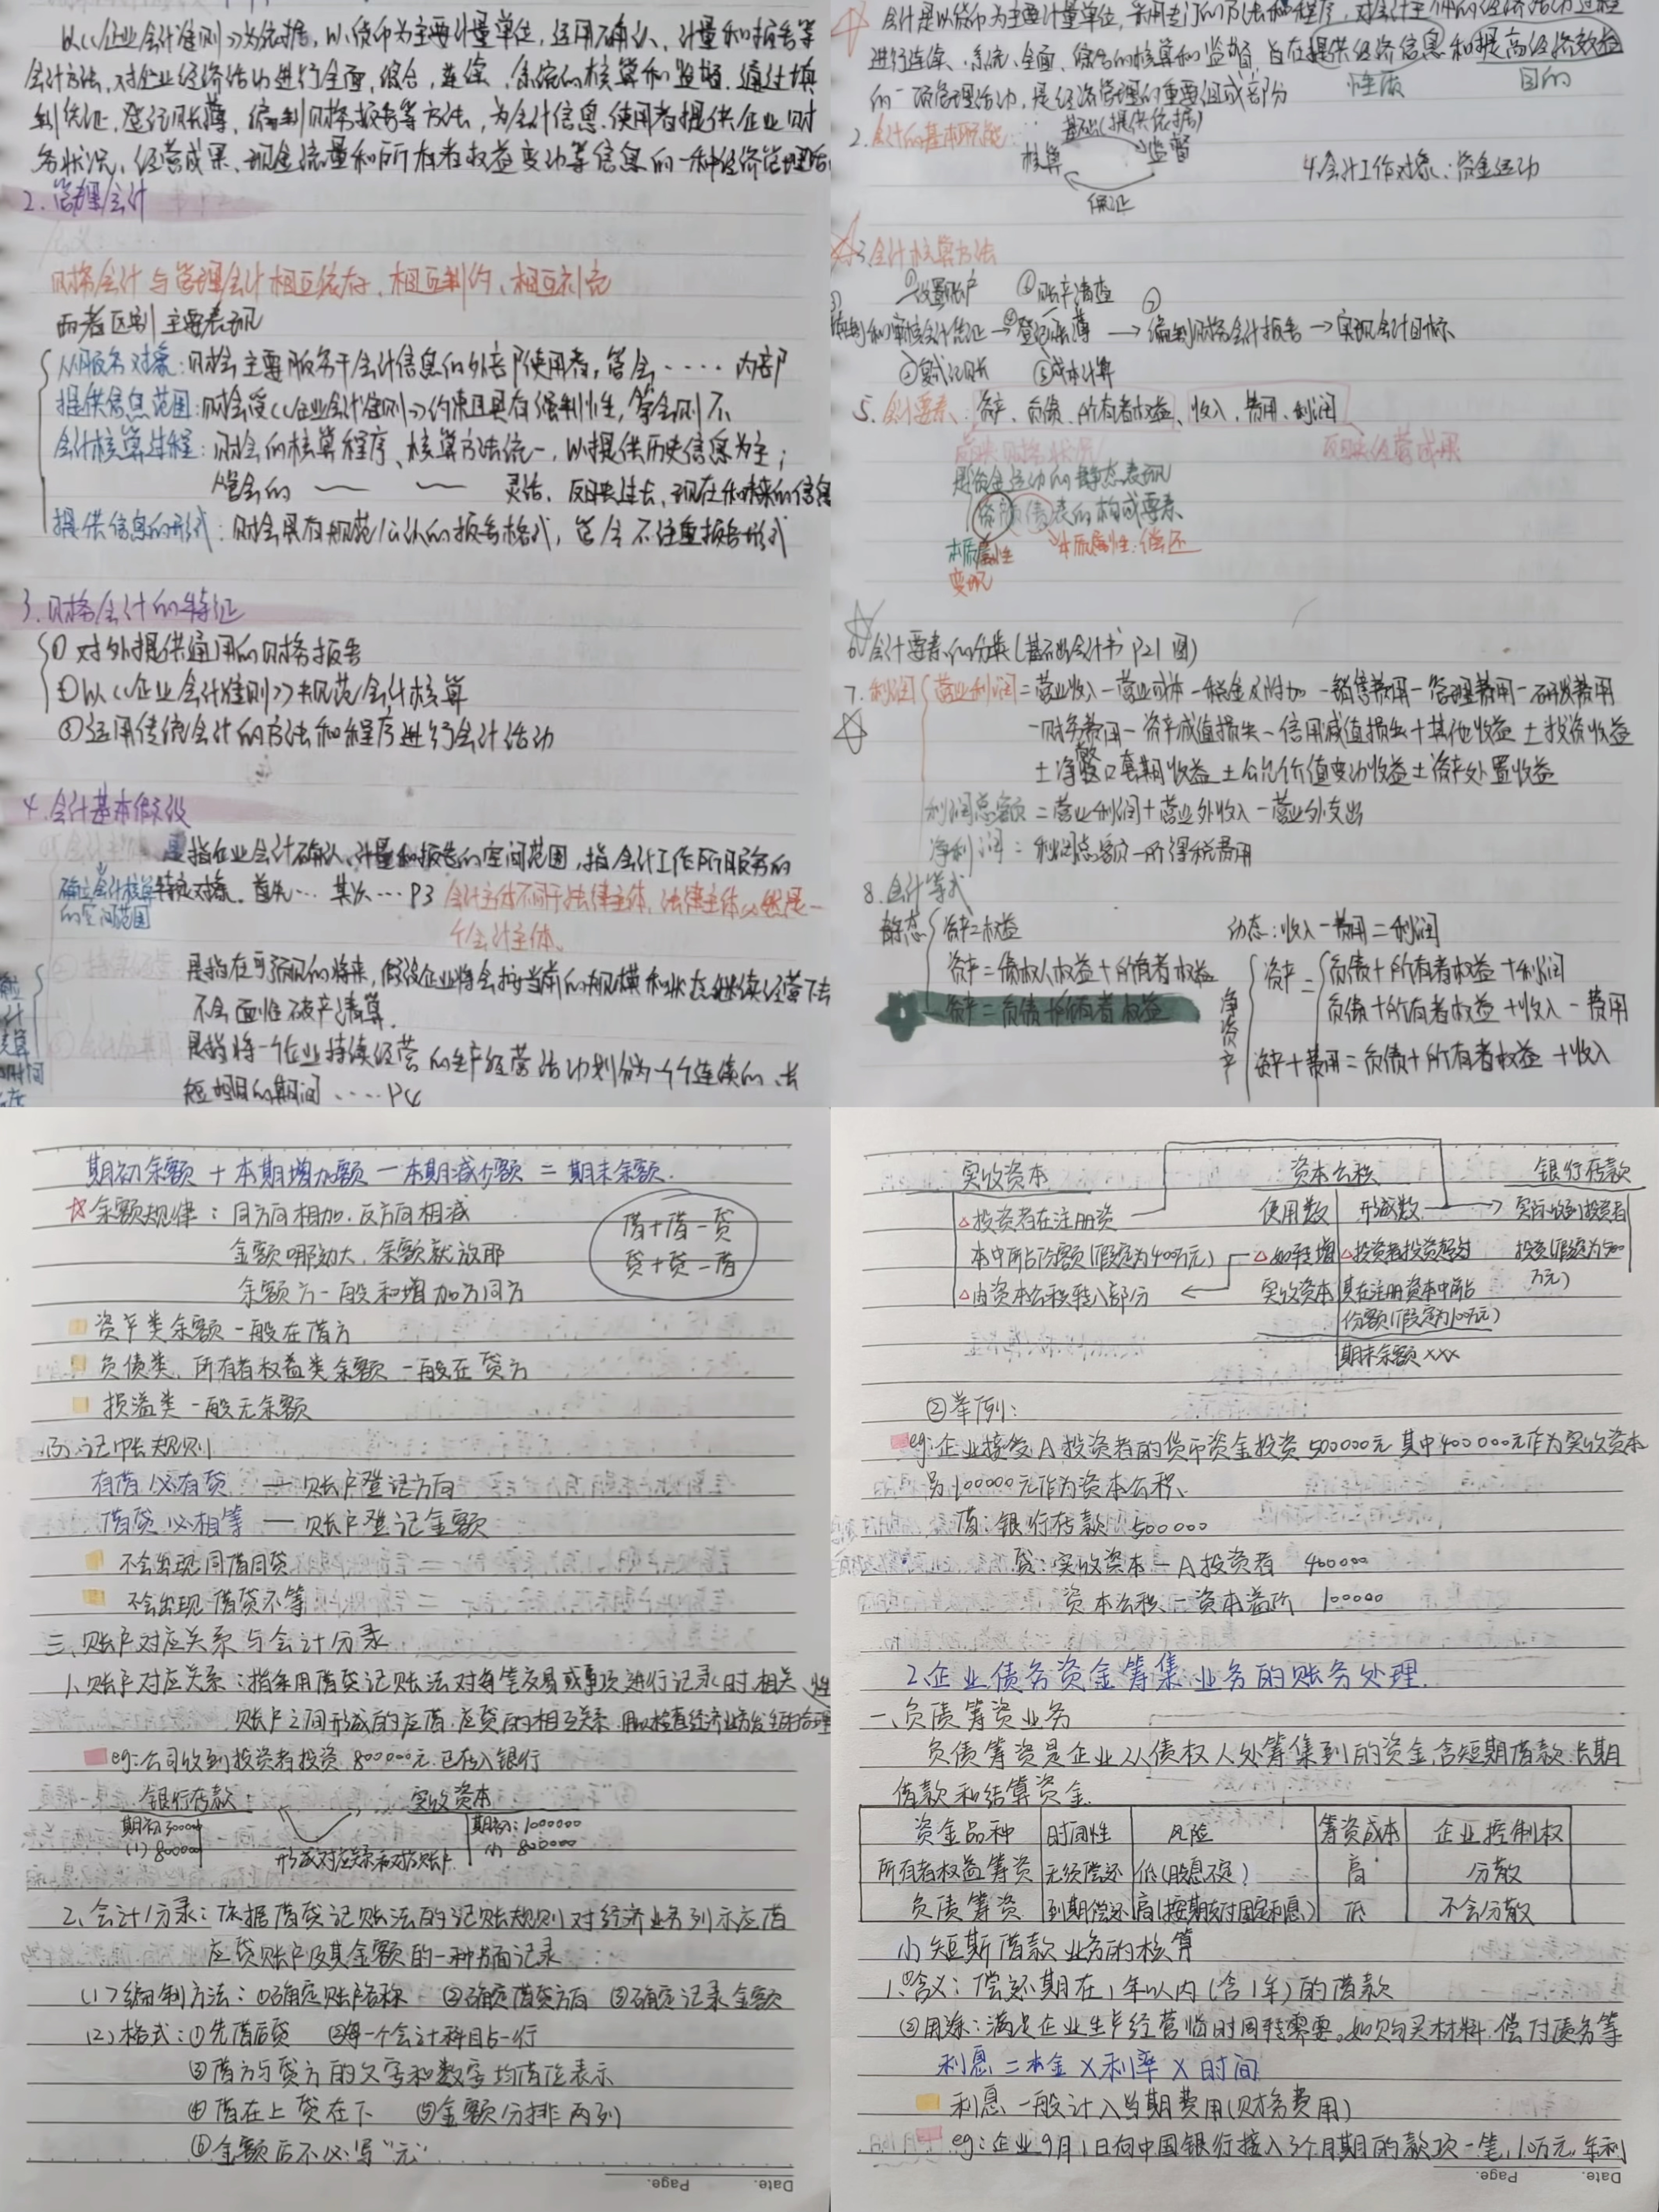 以《企业会计准则》为依据，以货币为主要计量单位，运用确认、计量和报告等
会计方法，对企业经济活动进行全面，综合，连续，系统的核算和监督，通过填
制凭证，登记账薄，编制财务报告等方法，为会计信息使用者提供企业财
务状况、经营成果、现金流量和所有者权益变动等信息的一种经济管理活
2.管理会计
财务会计与管理会计相互依存、相互制约、相互补充
两者区别主要表现
从服务对象：财会主要服务于会计信息的外部使用者，管会‥‥内部
提供信息范围：财会受《企业会计准则》约束且具有强制性，管会则不
会计核算过程：财会的核算程序、核算方法统一，以提供历史信息为主；
管会的 —— —— 灵活，反映过去，现在和未来的信息
提供信息的形式：财会具有规范公认的报告格式，管会不注重报告形式
3.财务会计的特征
① 对外提供通用的财务报告
②以《企业会计准则》规范会计核算
③运用传统会计的方法和程序进行会计活动
4.会计基本假设
是指企业会计确认、计量和报告的空间范围，指会计工作所服务的
特定对象。首先… 其次…P3 会计主体不同于法律主体，法律主体必然是一
个会计主体。
确立会计核算
的空间范围
②持续经营 是指在可预见的将来，假设企业将会按当前的规模和状态继续经营下去
不会面临破产清算.
③会计分期 是指将一个企业持续经营的生产经营活动划分为一个个连续的、长
短相同的期间‥‥P4
会计是以货币为主要计量单位，采用专门的方法和程序，对会计主体的经济活动过程
进行连续、系统、全面、综合的核算和监督，旨在提供经济信息和提高经济效益
的一项管理活动，是经济管理的重要组成部分 性质 目的
2.会计的基本职能： 基础(提供依据)
核算 监督
保证
4.会计工作对象：资金运动
3会计核算方法
①设置账户 ⑥账产清查 ⑦
填制和审核会计凭证→④登记账薄→编制财务会计报告→实现会计目标
②复式记账 ⑤成本计算
5.会计要素：资产、负债、所有者权益、收入、费用、利润
反映财务状况 反映经营成果
是资金运动的静态表现
资产负债表的构成要素
本质属性 本质属性：偿还
变现
6会计要素的分类(基础会计书P21图)
7.利润 营业利润=营业收入－营业成本－税金及附加－销售费用－管理费用－研发费用
－财务费用－资产减值损失－信用减值损失+其他收益±投资收益
±净敞口套期收益±公允价值变动收益±资产处置收益
利润总额=营业利润+营业外收入－营业外支出
净利润=利润总额－所得税费用
8.会计等式
静态 资产=权益
资产=债权人权益+所有者权益
资产=负债+所有者权益
动态：收入－费用=利润
净资产
资产= 负债+所有者权益+利润
负债+所有者权益+收入－费用
资产+费用=负债+所有者权益+收入
期初余额+本期增加额－本期减少额=期末余额.
☆余额规律：同方向相加.反方向相减
金额哪边大，余额就放那
余额方一般和增加方同方
借+借－贷
贷+贷－借
资产类余额一般在借方
负债类、所有者权益类余额一般在贷方
损溢类一般无余额
(3).记帐规则
有借必有贷 — 账户登记方向
借贷必相等 — 账户登记金额
不会出现同借同贷
不会出现借贷不等
三、账户对应关系与会计分录
1、账户对应关系：指采用借贷记账法对每笔交易或事项进行记录时.相关
账户之间形成的应借.应贷的相互关系.用以检查经济业务发生的合理性
eg:公司收到投资者投资800000元.已存入银行
银行存款 实收资本
期初30000 期初:1000000
(1)800000 (1)800000
形成对应关系和对应账户
2、会计分录：依据借贷记账法的记账规则对经济业务列示应借
应贷账户及其金额的一种书面记录
(1)编制方法：①确定账户名称 ②确定借贷方向 ③确定记录金额
(2)格式：①先借后贷 ②每一个会计科目占一行
③借方与贷方的文字和数字均借位表示
④借在上贷在下 ⑤金额分排两列
⑥金额后不必写"元"
Date. Page.
实收资本 资本公积 银行存款
△投资者在注册资
本中所占份额(假定为400万元)
△由资本公积转入部分
使用数
△如转增
实收资本
形成数
△投资者投资超过
其在注册资本中所占
份额(假定为100万元)
期末余额×××
实际收到投资者
投资(假定为500
万元)
②举例：
eg:企业接受A投资者的货币资金投资500000元.其中400000元作为实收资本
另100000元作为资本公积、
借：银行存款 500000
贷：实收资本－A投资者 400000
资本公积－资本溢价 100000
2、企业债务资金筹集业务的账务处理.
一、负债筹资业务
负债筹资是企业从债权人处筹集到的资金.含短期借款.长期
借款和结算资金.
资金品种 时间性 风险 筹资成本 企业控制权
所有者权益筹资 无须偿还 低(股息不定) 高 分散
负债筹资 到期偿还 高(按期支付固定利息) 低 不会分散
(1)短期借款业务的核算
1.①含义：偿还期在1年以内(含1年)的借款
②用途：满足企业生产经营临时周转需要。如购买材料.偿付债务等
利息=本金×利率×时间
利息一般计入当期费用(财务费用)
eg:企业9月1日向中国银行接入3个月期的款项一笔,10万元,年利
Date. Page.